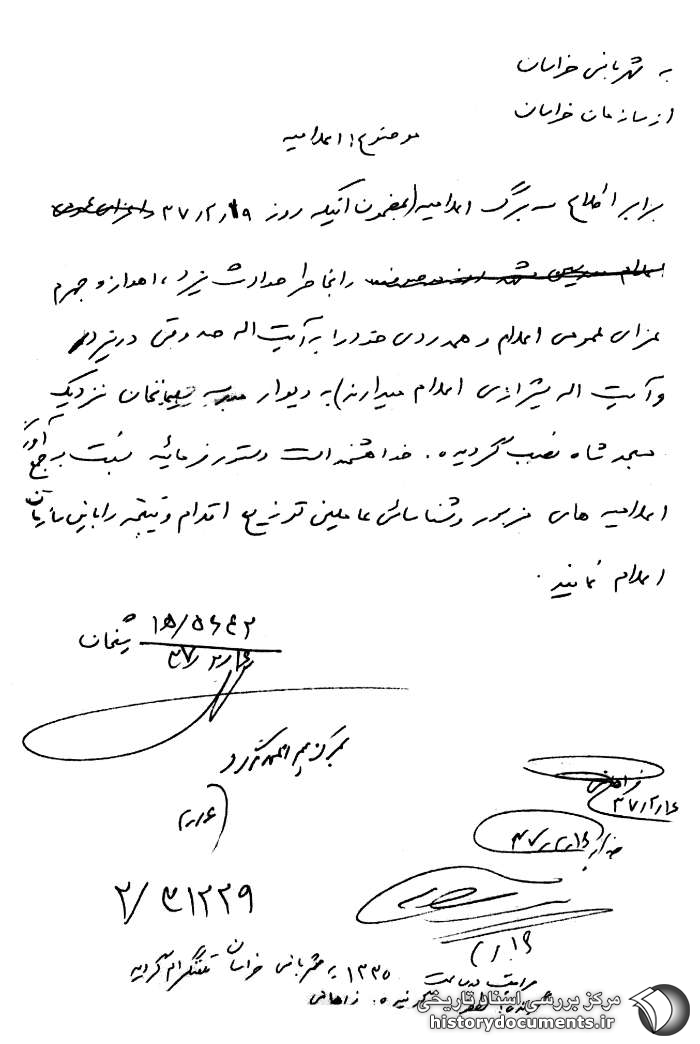 به شهربانی خراسان
از سازمان خراسان
موضوع: اعلامیه
برابر اطلاع سه برگ اعلامیه (بمضمون آنیکه روز ۳۷/۲/۱۹
را بخاطر حوادث یزد، اهواز و جهرم
عزای عمومی اعلام و همدردی خود را به آیت اله صدوقی در یزد
و آیت اله شیرازی اعلام میدارند) به دیوار نزدیک
مسجد شاه نصب گردیده. خواهشمند است دستور فرمائید نسبت به جمع آوری
اعلامیه های مزبور و شناسائی عاملین توزیع اقدام و نتیجه را باین سازمان
اعلام نمایند.
شیخان
۳۷/۲/۱۶
۳۷/۲/۱۶
۳۷/۲/۱۶
۲/۳۱۲۲۹
۱۳۳۵ به شهربانی خراسان تلفنگرام گردید
مرکز بررسی اسناد تاریخی
historydocuments.ir